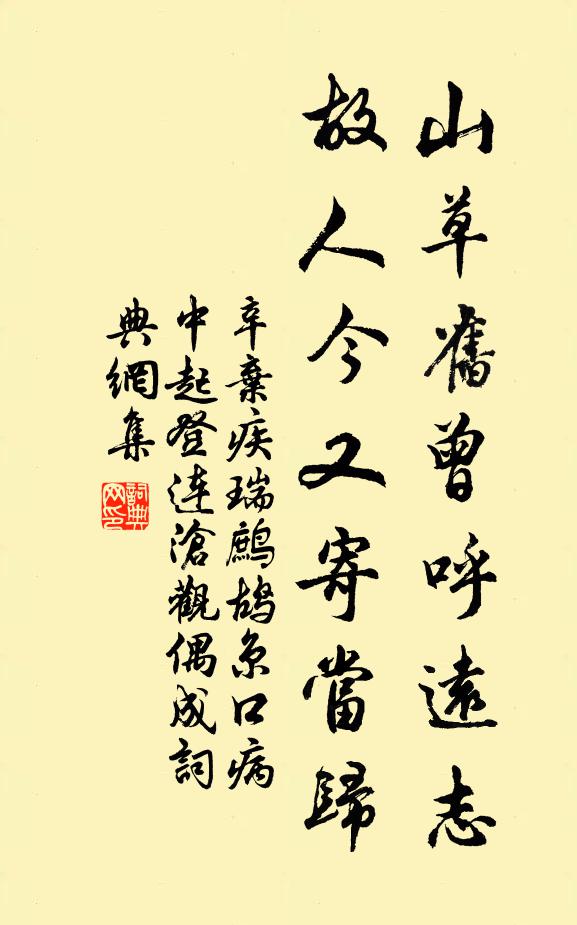 山草舊曾呼遠志
故人今又寄當歸
辛棄疾瑞鷓鴣京口病
中起登連滄觀偶成詞
典網集
詞典
网印